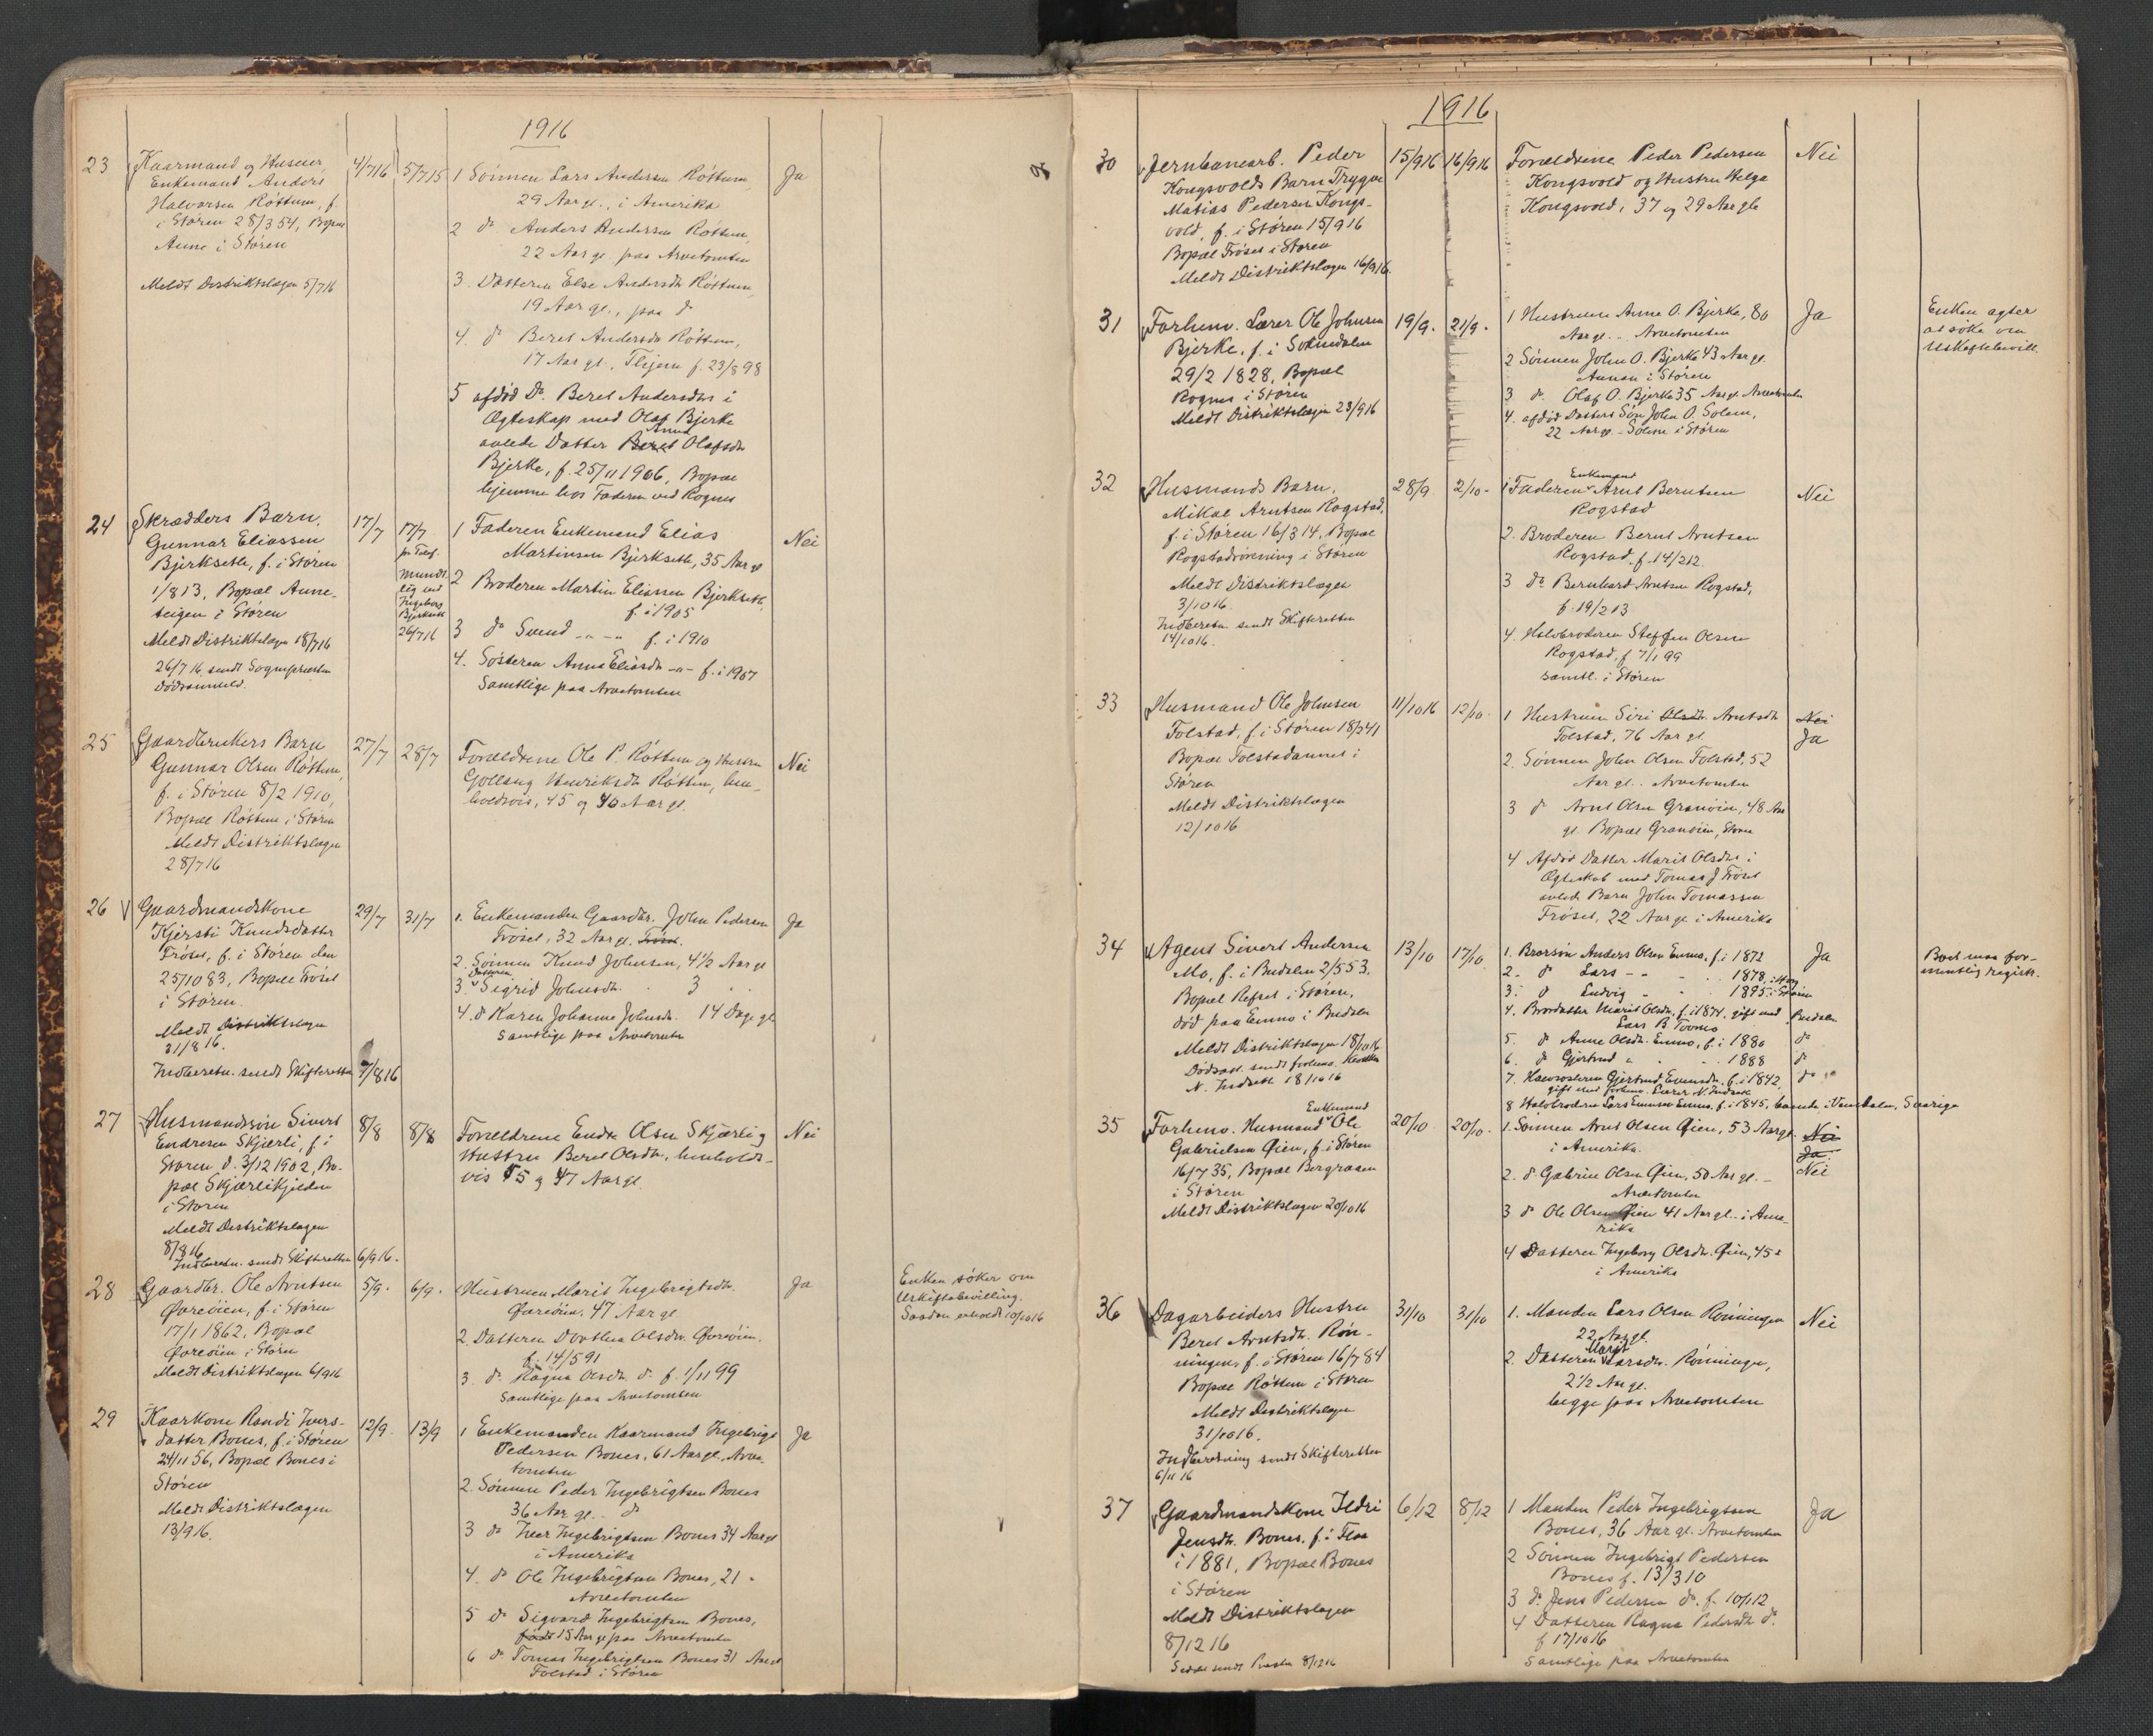 1916
23 Kaarmand og Husmer, 4/716 5/715 1 Sønnen Lars Andersen Røttum, Ja
Enkemand Anders 29 Aar gl., i Amerika
Halvorsen Røttum, f. 2 do Anders Andersen Røttum,
i Støren 28/3 54, Bopæl 22 Aar gl. paa Arvetomten
Aune i Støren 3. Datteren Else Andersdtr Røttum,
Meldt Distriktslægen 5/716 19 Aar gl., paa do
4. do Beret Andersdtr Røttum,
17 Aar gl., f. 23/8 98
5 afdød Dr. Beret Andersdtrs i
Ægteskap med Olaf Bjerke
avlede Datter Beret Anne Olafsdtr
Bjerke, f. 25/11 1906, Bopæl
hjemme hos Faderen ved Rognes
24 Skrædders Barn, 17/7 17/7 1 Faderen Enkemand Elias Nei
Gunnar Eliassen pr Telef. Martinsen Bjerksett, 35 Aar gl
Bjerksetli, f. i Støren mundt- 2 Broderen Martin Eliassen Bjerksetli,
1/8 13, Bopæl Aune- lig ved f. i 1905
teigen i Støren Ingeborg Bjerksett 3 do Svend -"-"- f. i 1910
Meldt Distriktslægen 18/716 26/716 4. Søsteren Anna Eliasdtr -"- f. i 1907
26/7 16 sendt Sognepresten Samtlige paa Arvetomten
dødsanmeld.
25 Gaardbrukers Barn 27/7 28/7 Forældrene Ole P. Røttum og Hustru Nei
Gunnar Olsen Røttum, Gollaug Henriksdtr Røttum, hen-
f. i Støren 8/2 1910, holdsvis, 45 og 40 Aar gl.
Bopæl Røttum i Støren
Meldt Distriktslægen
28/716
26 Gaardmandskone 29/7 31/7 1. Enkemanden Gaardbr. John Pedersen Ja
Kjersti Knudsdatter Frøset, 32 Aar gl. Frøset.
Frøset, f. i Støren den 2. Sønnen Knud Johnsen, 4½ Aar gl
25/10 83, Bopæl Frøset 3. Datteren Sigrid Johnsdtr. " 3 " "
i Støren. 4. do Karen Johanne Johnsdtr. 14 Dage gl.
Meldt Distriktslægen Samtlige paa Arvetomten
31/8 16.
Indberetn. sendt Skifteretten 7/816
27 Husmandssøn Sivert 8/8 8/8 Forældrene Endre Olsen Skjærli og Nei
Endresen Skjærli, f. i Hustru Beret Olsdtr, henholds-
Støren d. 3/12 1902, Bo- vis 55 og 47 Aar gl.
pæl Skjærlikjelden
i Støren
Meldt Distriktslægen
8/816
Indberetn. sendt Skifteretten 6/916.
28 Gaardbr. Ole Arntsen 5/9. 6/9. 1 Hustruen Marit Ingebrigtsdtr. Ja Enken søker om
Øvreøien, f. i Støren Øvreøien. 47 Aar gl Uskiftebevilling.
17/1 1862, Bopæl 2. Datteren Dorthea Olsdtr. Øvreøien. Saadan erholdt 10/1016
Øvreøien i Støren f. 14/5 91
Meldt Distriktslægen 6/916 3. do Ragna Olsdtr. do f. 1/11 99
Samtlige paa Arvetomten
29 Kaarkone Randi Ivers- 12/9. 13/9 1 Enkemanden Kaarmand Ingebrigt Ja
datter Bones, f. i Støren Pedersen Bones, 61 Aar gl., Arve-
24/11 56, Bopæl Bones i tomten
Støren 2. Sønnen Peder Ingebrigtsen Bones
Meldt Distriktslægen 36 Aar gl. do
13/916. 3 do Iver Ingebrigtsen Bones 34 Aar gl
i Amerika
4. do Ole Ingebrigtsen Bones, 21 "
Arvetomten
5 do Sigvard Ingebrigtsen Bones,
født 15 Aar gl paa Arvetomten
6 do Tomas Ingebrigtsen Bones 31 Aar gl
Folstad i Støren
1916
30 Jernbanearb. Peder 15/916 16/916 Forældrene Peder Pedersen Nei
Kongsvolds Barn Trygve Kongsvold og Hustru Helga
Matias Pedersen Kongs- Kongsvold, 37 og 29 Aar gle
vold, f. i Støren 15/9 16
Bopæl Frøset i Støren
Meldt Distriktslægen 16/916.
31 Forhenv. Lærer Ole Johnsen 19/9. 21/9. 1 Hustruen Anne O. Bjerke, 80 Ja Enken agter
Bjerke, f. i Soknedalen Aar gl. Arvetomten at søke om
29/2 1828, Bopæl 2 Sønnen John O. Bjerke 43 Aar gl. Uskiftebevill.
Rognes i Støren Aunan i Støren
Meldt Distriktslægen 23/916 3 do Olaf O. Bjerke 35 Aar gl Arvetomten
4. afdød Datters Søn John O. Solem,
22 Aar gl. Solem i Støren
32 Husmands Barn, 28/9 2/10. 1 Faderen Enkemand Arnt Berntsen Nei
Mikal Arntsen Rogstad, Rogstad
f. i Støren 16/3 14, Bopæl 2. Broderen Bernt Arntsen
Rogstadrønning i Støren Rogstad, f. 14/2 12.
Meldt Distriktslægen 3 do Bernhard Arntsen Rogstad,
3/1016. f. 19/2 13
Indberetn. sendt Skifteretten 4. Halvbroderen Steffen Olsen
14/1016. Rogstad, f 7/1 99
samtl. i Støren
33 Husmand Ole Johnsen 11/1016 12/10. 1 Hustruen Siri Olsdtr. Arntsdtr Nei
Folstad, f. i Støren 18/2 41 Folstad, 76 Aar gl. Ja
Bopæl Folstadaunet i 2. Sønnen John Olsen Folstad, 52
Støren Aar gl. Arvetomten
Meldt Distriktslægen 3 do Arnt Olsen Granøien, 48 Aar
12/1016 gl. Bopæl Granøien, Støren
4 Afdød Datter Marit Olsdtrs i
Ægteskab med Tomas J Frøset
avlede Barn John Tomassen
Frøset, 22 Aar gl. i Amerika
34 Agent Sivert Andersen 13/10 17/10 1. Brorsøn Anders Olsen Enmo, f. i 1872 Ja Boet maa for-
Mo, f. i Budalen 2/5 53, 2. do Lars " " 1878, mentlig registr.
Bopæl Refset i Støren, 3. do Ludvig " " 1895 i Støren
død paa Enmo i Budalen 4. Brordatter Marit Olsdtr, f. i 1874, gift med Budalen
Meldt Distriktslægen 18/1016 Lars B. Tovmo
Dødsanm. sendt forhenv. 5. do Anne Olsdtr. Enmo, f. i 1880 do
N. Indset 18/1016 6. do Gjertrud " " 1888 do
7. Halvsøsteren Gjertrud Evensdtr. f. i 1842, do
gift med forhenv. Lærer N. Indset
8 Halvbroderen Lars Evensen Enmo, f. i 1845, boende i Vemdalen, Sverige
35 Forhenv. Husmand Enkemand Ole 20/10 20/10. 1. Sønnen Arnt Olsen Øien, 53 Aar gl. Nei
Gabrielsen Øien, f. i Støren i Amerika. Ja
16/7 35, Bopæl Bergrosen 2. do Gabriel Olsen Øien, 50 Aar gl. Nei
i Støren Arvetomten
Meldt Distriktslægen 20/1016 3 do Ole Olsen Øien 41 Aar gl. i Ame-
rika
4 Datteren Ingeborg Olsdtr. Øien, 45 "
i Amerika
36 Dagarbeiders Hustru 31/10 31/10 1. Manden Lars Olsen Rønningen Nei
Beret Arntsdtr. Røn- 22 Aar gl.
ningen, f. i Støren 16/7 84 2. Datteren Marit Larsdtr. Rønningen,
Bopæl Røttum i Støren 2½ Aar gl.
Meldt Distriktslægen begge paa Arvetomten
31/1016.
Indberetning sendt Skifteretten
6/11 16
37 Gaardmandskone Ildri 6/12 8/12 1 Manden Peder Ingebrigtsen Ja
Jensdtr. Bones, f. i Flaa Bones, 36 Aar gl. Arvetomten
i 1881, Bopæl Bones 2 Sønnen Ingebrigt Pedersen
i Støren Bones f. 13/3 10
Meldt Distriktslægen 3 do Jens Pedersen do. f. 10/1 12
8/12 16 4 Datteren Ragna Pedersdtr do.
f 17/10 16
Seddel sendt Presten 8/1216 Samtlige paa Arvetomten